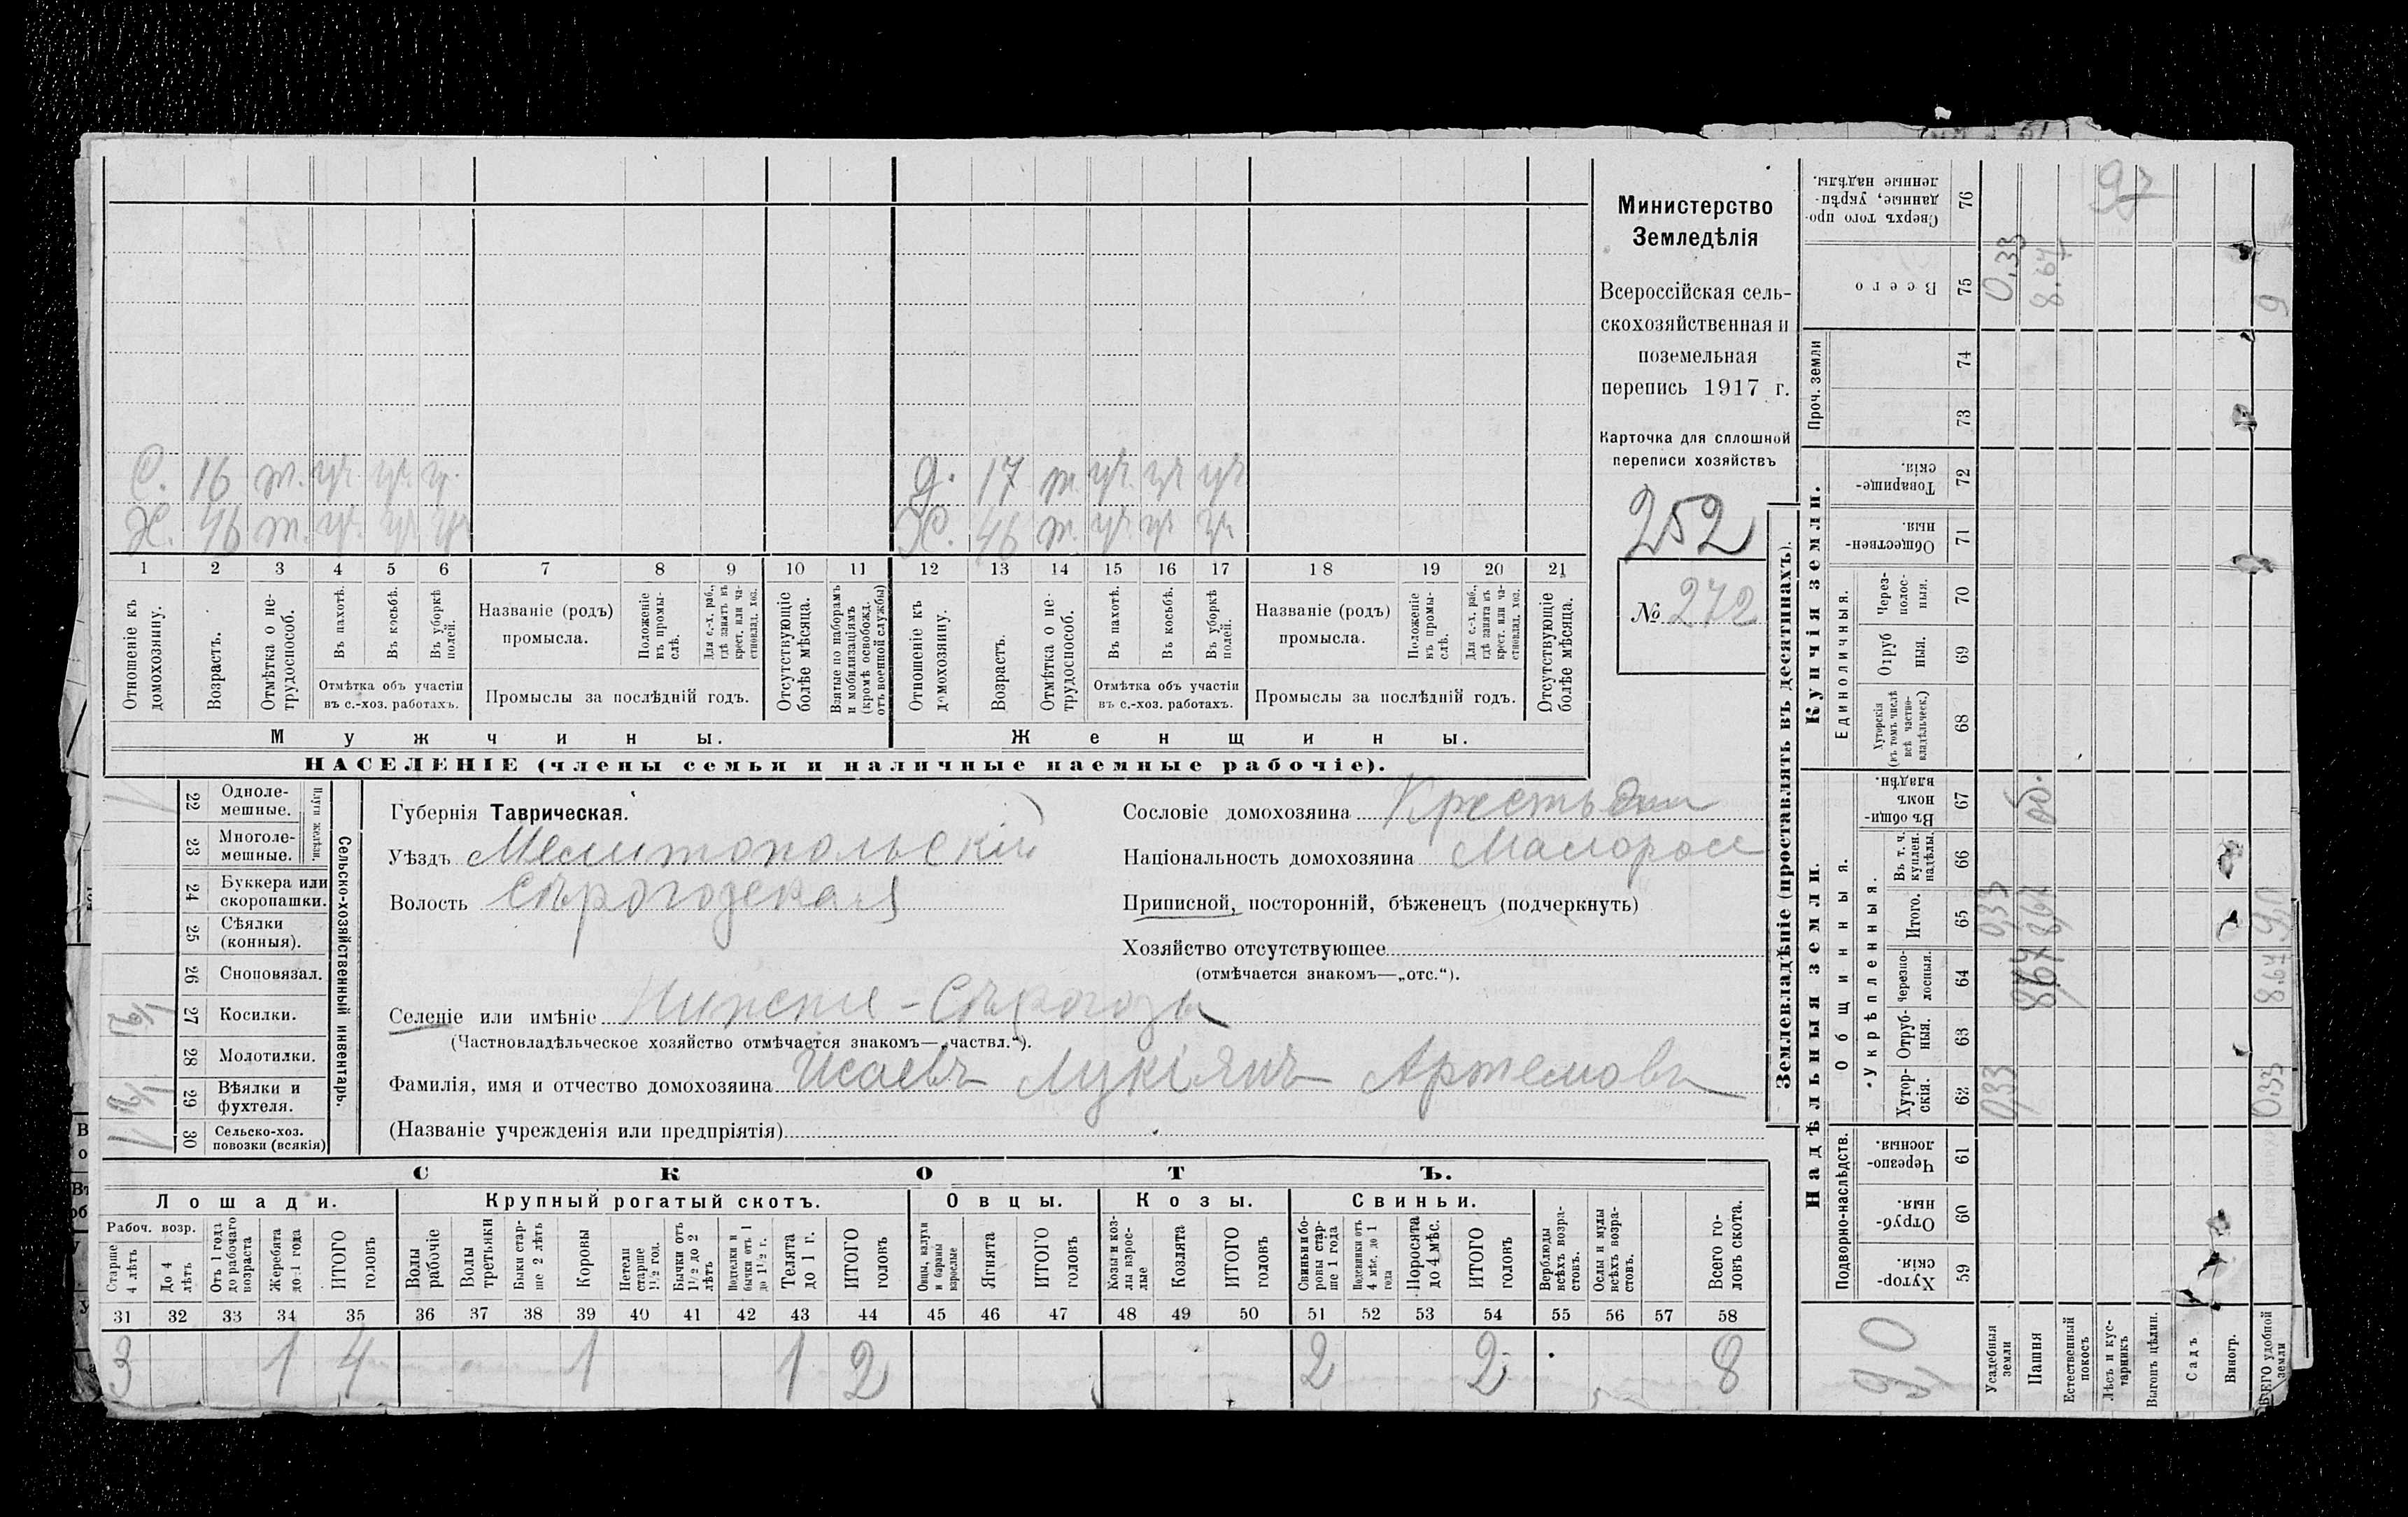 С. 16 т. уч. уч. у. Д. 17 т. уч. уч уч
Х. 46 т. уч. уч. уч Х. 46 т. уч. уч. уч
1 2 3 4 5 6 7 8 9 10 11 12 13 14 15 16 17 18 19 20 21
Отношеніе къ домохозяину.
Возрастъ.
Отмѣтка о не-трудоспособ.
Въ пахотѣ.
Въ косьбѣ.
Въ уборкѣ полей.
Отмѣтка объ участіи въ с.-хоз. работахъ.
Названіе (родъ) промысла.
Положеніе въ промы-слѣ.
Для с.-х. раб., гдѣ занятъ въ крест. или ча-стновлад. хоз.
Промыслы за послѣдній годъ.
Отсутствующіе болѣе мѣсяца.
Взятые по наборамъ и мобилизаціямъ (кромѣ освобожд. отъ военной службы)
Отношеніе къ домохозяину.
Возрастъ.
Отмѣтка о не-трудоспособ.
Въ пахотѣ.
Въ косьбѣ.
Въ уборкѣ полей.
Отмѣтка объ участіи въ с.-хоз. работахъ.
Названіе (родъ) промысла.
Положеніе въ промы-слѣ.
Для с.-х. раб., гдѣ занята въ крест. или ча-стновлад. хоз.
Промыслы за послѣдній годъ.
Отсутствующіе болѣе мѣсяца.
Мужчины. Женщины.
НАСЕЛЕНІЕ (члены семьи и наличные наемные рабочіе).
Министерство
Земледѣлія
Всероссійская сель-
скохозяйственная и
поземельная
перепись 1917 г.
Карточка для сплошной
переписи хозяйствъ
252
№ 272
22 Одноле-мешные.
23 Многоле-мешные.
Плуги желѣзн.
24 Буккера или скоропашки.
25 Сѣялки (конныя).
26 Сноповязал.
27 Косилки. 1/2
28 Молотилки.
29 Вѣялки и фухтеля.
30 Сельско-хоз. повозки (всякія)
Сельско-хозяйственный инвентарь.
Губернія Таврическая.
Уѣздъ Мелитопольскій
Волость Сѣрогозская
Сословіе домохозяина Крестьянин
Національность домохозяина Малоросс
Приписной, посторонній, бѣженецъ (подчеркнуть)
Хозяйство отсутствующее
(отмѣчается знакомъ—„отс.“).
Селеніе или имѣніе Нижніе-Сѣрогозы
(Частновладѣльческое хозяйство отмѣчается знакомъ—„частвл.“).
Фамилія, имя и отчество домохозяина Исаевъ Лукіянъ Артемовъ
(Названіе учрежденія или предпріятія)
СКОТЪ.
Лошади. Крупный рогатый скотъ. Овцы. Козы. Свиньи.
Рабоч. возр.
Старше 4 лѣтъ
До 4 лѣтъ
Отъ 1 года до рабочаго возраста
Жеребята до 1 года
ИТОГО головъ
Волы рабочіе
Волы третьяки
Быки стар-ше 2 лѣтъ
Коровы
Нетели старше 1 1/2 год.
Бычки отъ 1 1/2 до 2 лѣтъ
Подтелки и бычки отъ 1 до 1 1/2 г.
Телята до 1 г.
ИТОГО головъ
Овцы, валухи и бараны взрослые
Ягнята
ИТОГО головъ
Козы и коз-лы взрос-лые
Козлята
ИТОГО головъ
Свиньи и бо-ровы стар-ше 1 года
Подсвинки отъ 4 мѣс. до 1 года
Поросята до 4 мѣс.
ИТОГО головъ
Верблюды всѣхъ возра-стовъ.
Ослы и мулы всѣхъ возра-стовъ.
Всего го-ловъ скота.
31 32 33 34 35 36 37 38 39 40 41 42 43 44 45 46 47 48 49 50 51 52 53 54 55 56 57 58
3 1 4 1 1 2 2 2 8
Землевладѣніе (проставлять въ десятинахъ).
Надѣльныя земли. Купчія земли. Проч. земли
Подворно-наслѣдств. Общинныя. Укрѣпленныя. Единоличныя.
Хутор-скія. 59
Отруб-ныя. 60
Черезпо-лосныя. 61
Хутор-скія. 62
Отруб-ныя. 63
Черезпо-лосныя. 64
Итого. 65
Въ т. ч. куплен. надѣлы. 66
Въ общин-номъ владѣн. 67
Хуторскія (въ томъ числѣ всѣ частно-владѣльческ.) 68
Отруб ныя. 69
Через-полос-ныя. 70
Обществен-ныя. 71
Товарище-скія. 72
73
74
Всего 75
Сверхъ того про-данные, укрѣп-ленные надѣлы. 76
90
Усадебныя земли 0,33 0,33 0,33
Пашня 8,67 8,67 об. 8,67
Естественный покосъ
Лѣсъ и кус-тарникъ 97
Выгонъ цѣлин.
Садъ
Виногр.
ВСЕГО удобной земли 0,33 8,67 9,0 9